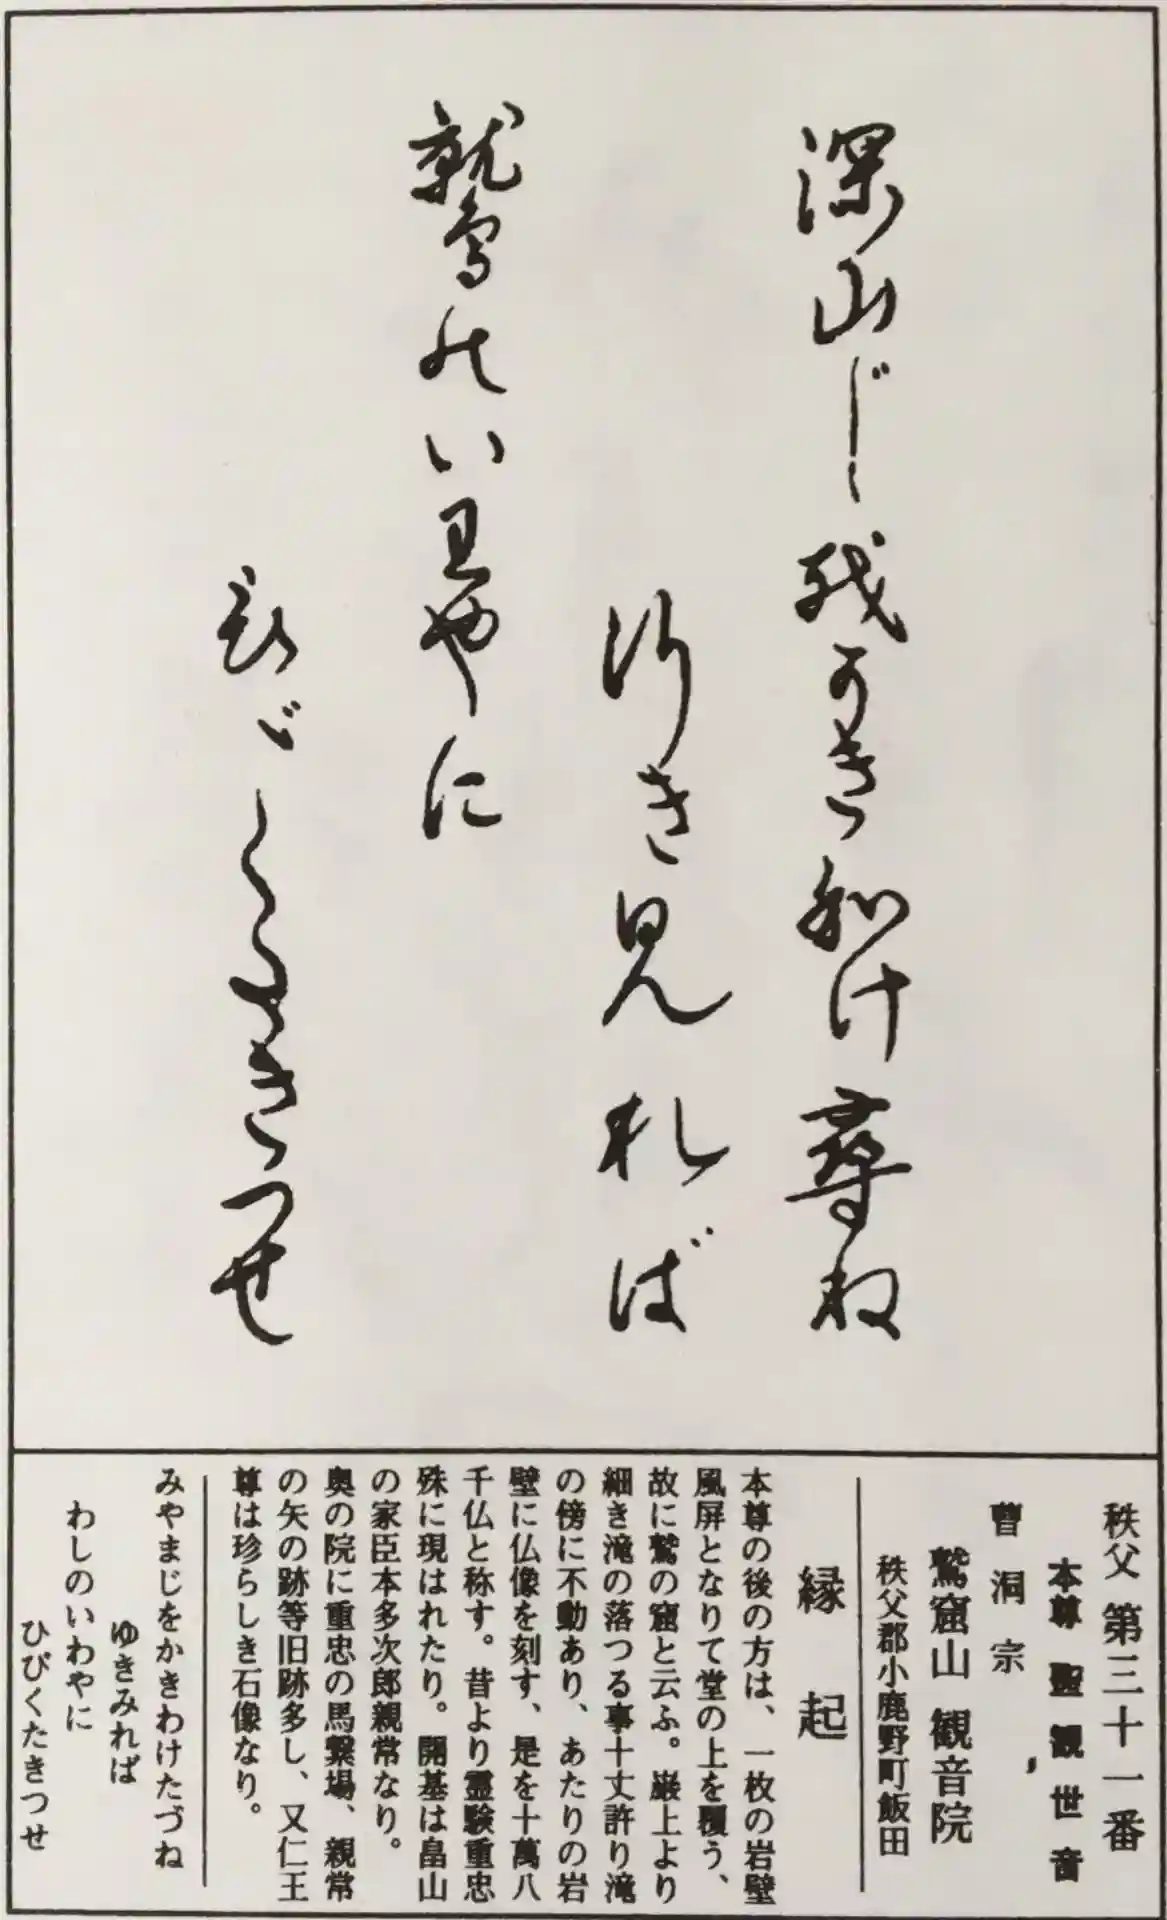 深山じを かきわけ尋ね
行き見れば
鷲のいわやに
ひびくたきつせ
秩父 第三十一番
本尊 聖観世音
曹洞宗
鷲窟山 観音院
秩父郡小鹿野町飯田
縁起
本尊の後の方は、一枚の岩壁
風屏となりて堂の上を覆う、
故に鷲の窟と云ふ。巌上より
細き滝の落つる事十丈許り滝
の傍に不動あり、あたりの岩
壁に仏像を刻す、是を十萬八
千仏と称す。昔より霊験重忠
殊に現はれたり。開基は畠山
の家臣本多次郎親常なり。
奥の院に重忠の馬繋場、親常
の矢の跡等旧跡多し、又仁王
尊は珍らしき石像なり。
みやまじをかきわけたづね
ゆきみれば
わしのいわやに
ひびくたきつせ